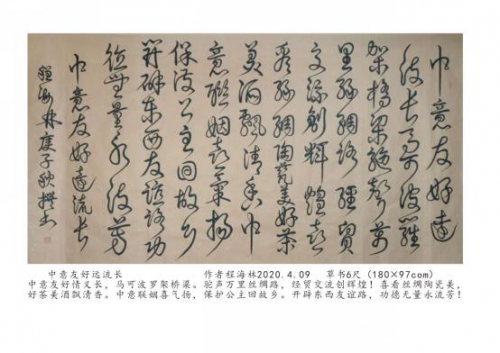 中意友好遠
流长马可波羅
架橋梁駝聲萬
里絲綢路經貿
交流創輝煌喜
看絲綢陶瓷美好茶
美酒飄清香中
意聯姻喜氣揚
保護公主回故乡
開辟东西友谊路功
德無量永流芳
中意友好遠流长
程海林庚子秋撰书
中意友好远流长 作者程海林2020.4.09 草书6尺（180×97com）
中意友好情又长，马可波罗架桥梁。驼声万里丝绸路，经贸交流创辉煌！喜看丝绸陶瓷美，
好茶美酒飘清香。中意联姻喜气扬，保护公主回故乡。开辟东西友谊路，功德无量永流芳！